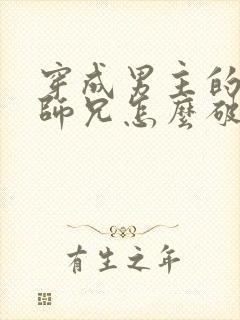 穿成男主的
師兄怎麼破
有生之年